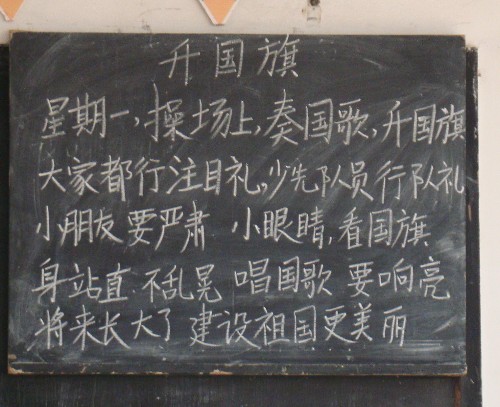 升国旗
星期一,操场上,奏国歌,升国旗
大家都行注目礼,少先队员行队礼
小朋友 要严肃 小眼睛,看国旗
身站直.不乱晃 唱国歌 要响亮
将来长大了 建设祖国更美丽